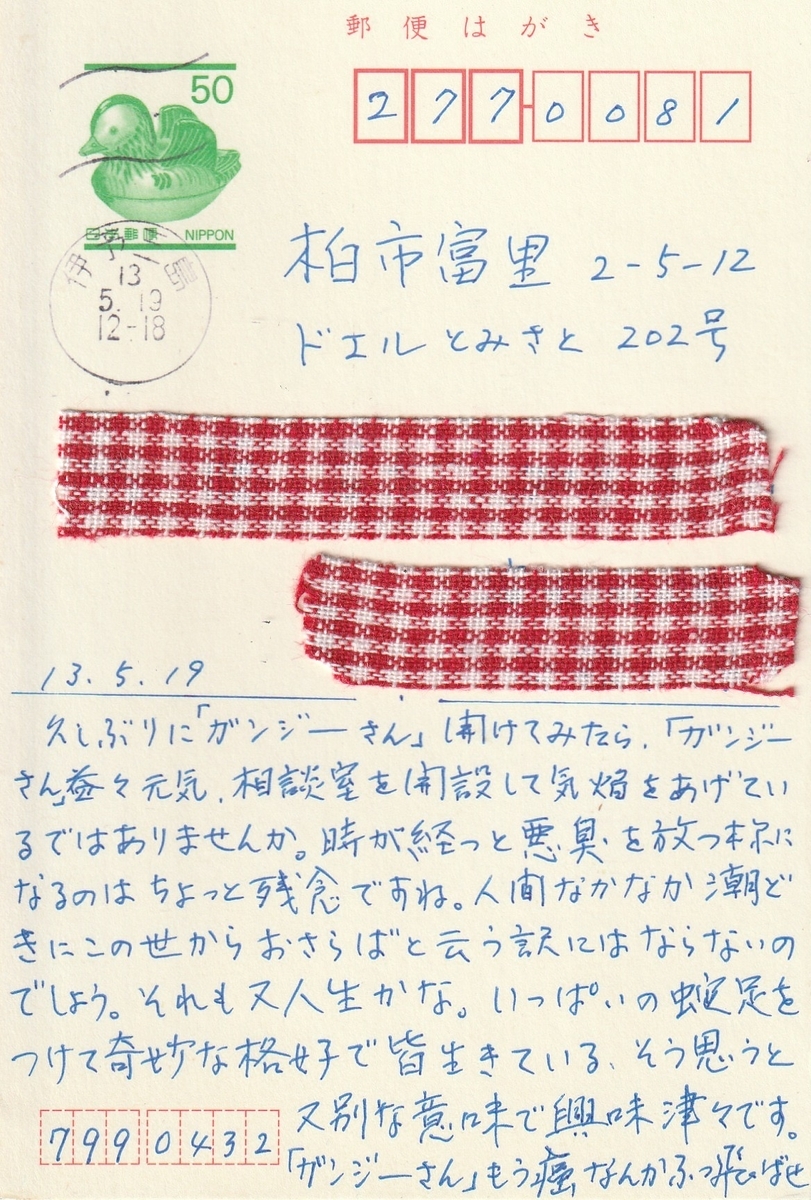 郵便はがき
50
日本郵便 NIPPON
2770081
伊予三島
13
5.19
12-18
柏市富里 2-5-12
ドエルとみさと 202号
13.5.19
久しぶりに「ガンジーさん」開けてみたら、「ガンジー
さん」益々元気、相談室を開設して気焔をあげてい
るではありませんか。時が経つと悪臭を放つ様に
なるのはちょっと残念ですね。人間なかなか潮ど
きにこの世からおさらばと云う訳にはならないの
でしょう。それも又人生かな。いっぱいの蛇足を
つけて奇妙な格好で皆生きている、そう思うと
又別な意味で興味津々です。
「ガンジーさん」もう癌なんかふっ飛ばせ
7990432